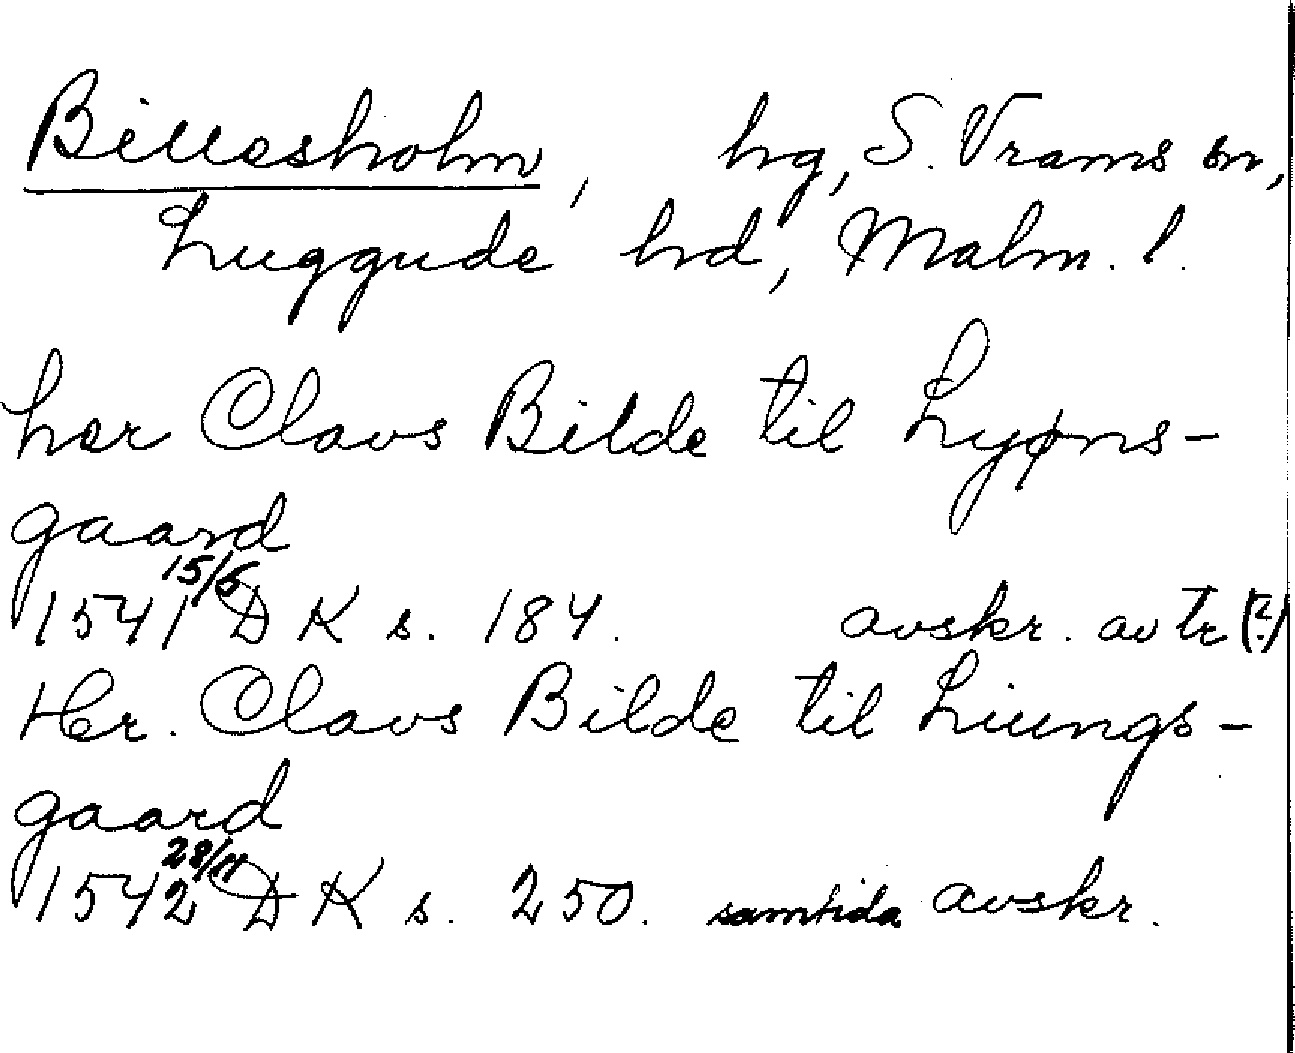 Billesholm, hg, S. Vrams sn,
Luggude hd, Malm. l.
her Clavs Bilde til Lyøns-
gaard
1541 15/6 DK s. 184. avskr. av tr (?)
Her. Clavs Bilde til Liungs-
gaard
1542 28/11 DK s. 250. samtida avskr.